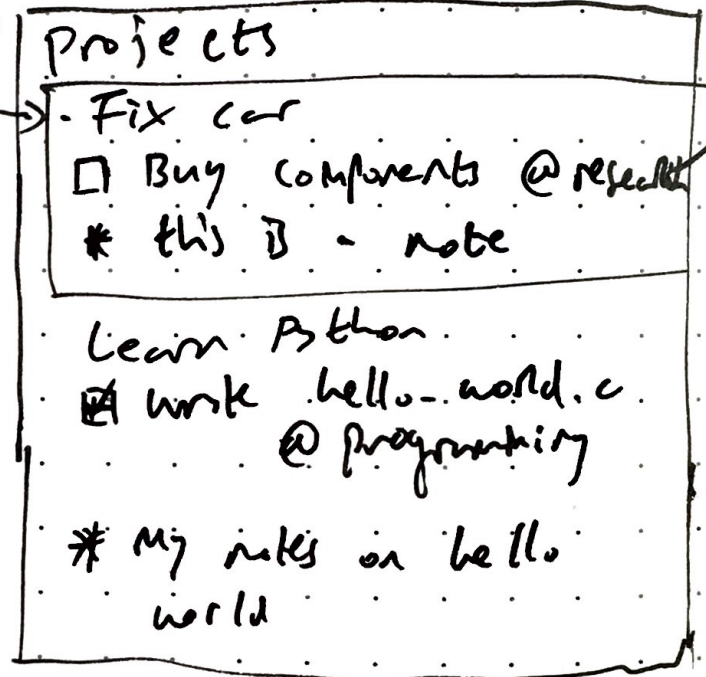 Projects
- Fix car
□ Buy components @research
* this is a note
Learn Python
☑ write hello_world.c
@programming
* My notes on hello
world